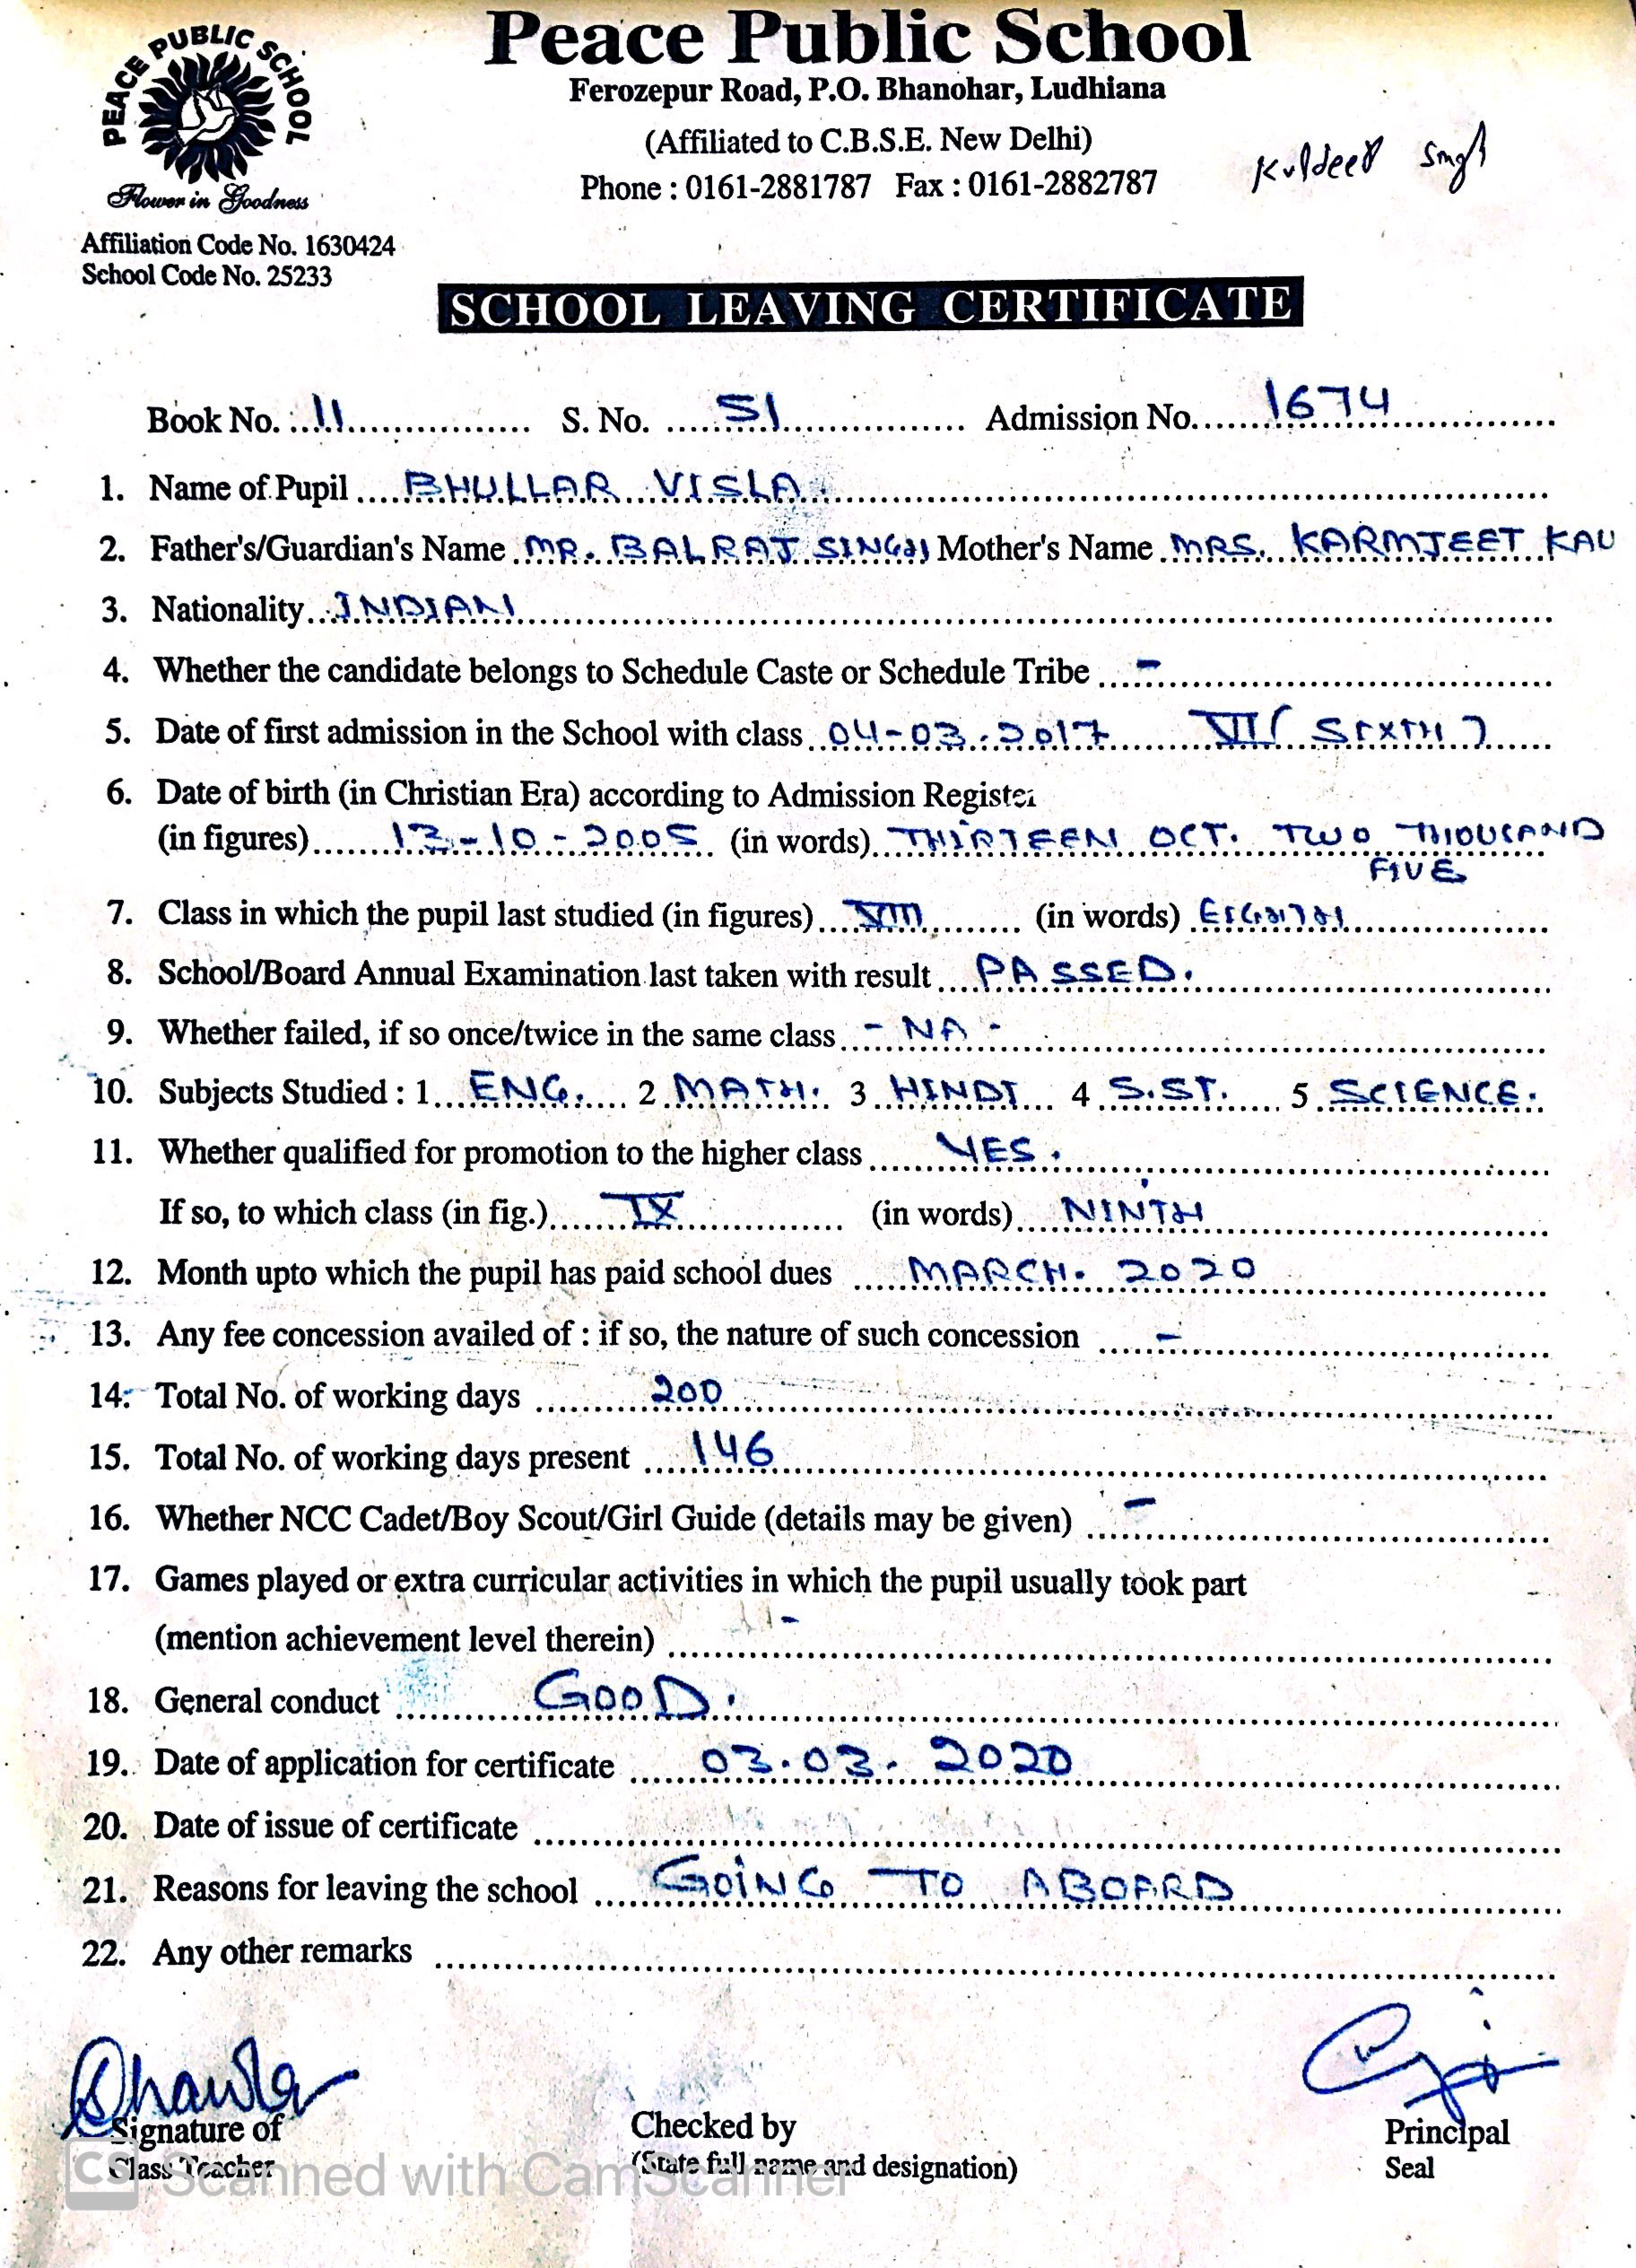 PEACE PUBLIC SCHOOL
Flower in Goodness
Affiliation Code No. 1630424
School Code No. 25233
Peace Public School
Ferozepur Road, P.O. Bhanohar, Ludhiana
(Affiliated to C.B.S.E. New Delhi)
Phone : 0161-2881787 Fax : 0161-2882787
Kuldeep Singh
SCHOOL LEAVING CERTIFICATE
Book No. 11 S. No. 51 Admission No. 1674
1. Name of Pupil BHULLAR VISLA
2. Father's/Guardian's Name MR. BALRAJ SINGH Mother's Name MRS. KARMJEET KAU
3. Nationality INDIAN
4. Whether the candidate belongs to Schedule Caste or Schedule Tribe -
5. Date of first admission in the School with class 04-03-2017 VI (SIXTH)
6. Date of birth (in Christian Era) according to Admission Register
(in figures) 13-10-2005 (in words) THIRTEEN OCT. TWO THOUSAND
FIVE
7. Class in which the pupil last studied (in figures) VIII (in words) EIGHTH
8. School/Board Annual Examination last taken with result PASSED.
9. Whether failed, if so once/twice in the same class - NA -
10. Subjects Studied : 1 ENG. 2 MATH. 3 HINDI 4 S.ST. 5 SCIENCE.
11. Whether qualified for promotion to the higher class YES.
If so, to which class (in fig.) IX (in words) NINTH
12. Month upto which the pupil has paid school dues MARCH. 2020
13. Any fee concession availed of : if so, the nature of such concession -
14. Total No. of working days 200
15. Total No. of working days present 146
16. Whether NCC Cadet/Boy Scout/Girl Guide (details may be given) -
17. Games played or extra curricular activities in which the pupil usually took part
(mention achievement level therein) -
18. General conduct GOOD.
19. Date of application for certificate 03.03.2020
20. Date of issue of certificate
21. Reasons for leaving the school GOING TO ABOARD
22. Any other remarks
Signature of
Class Teacher
Checked by
(State full name and designation)
Principal
Seal
CS Scanned with CamScanner